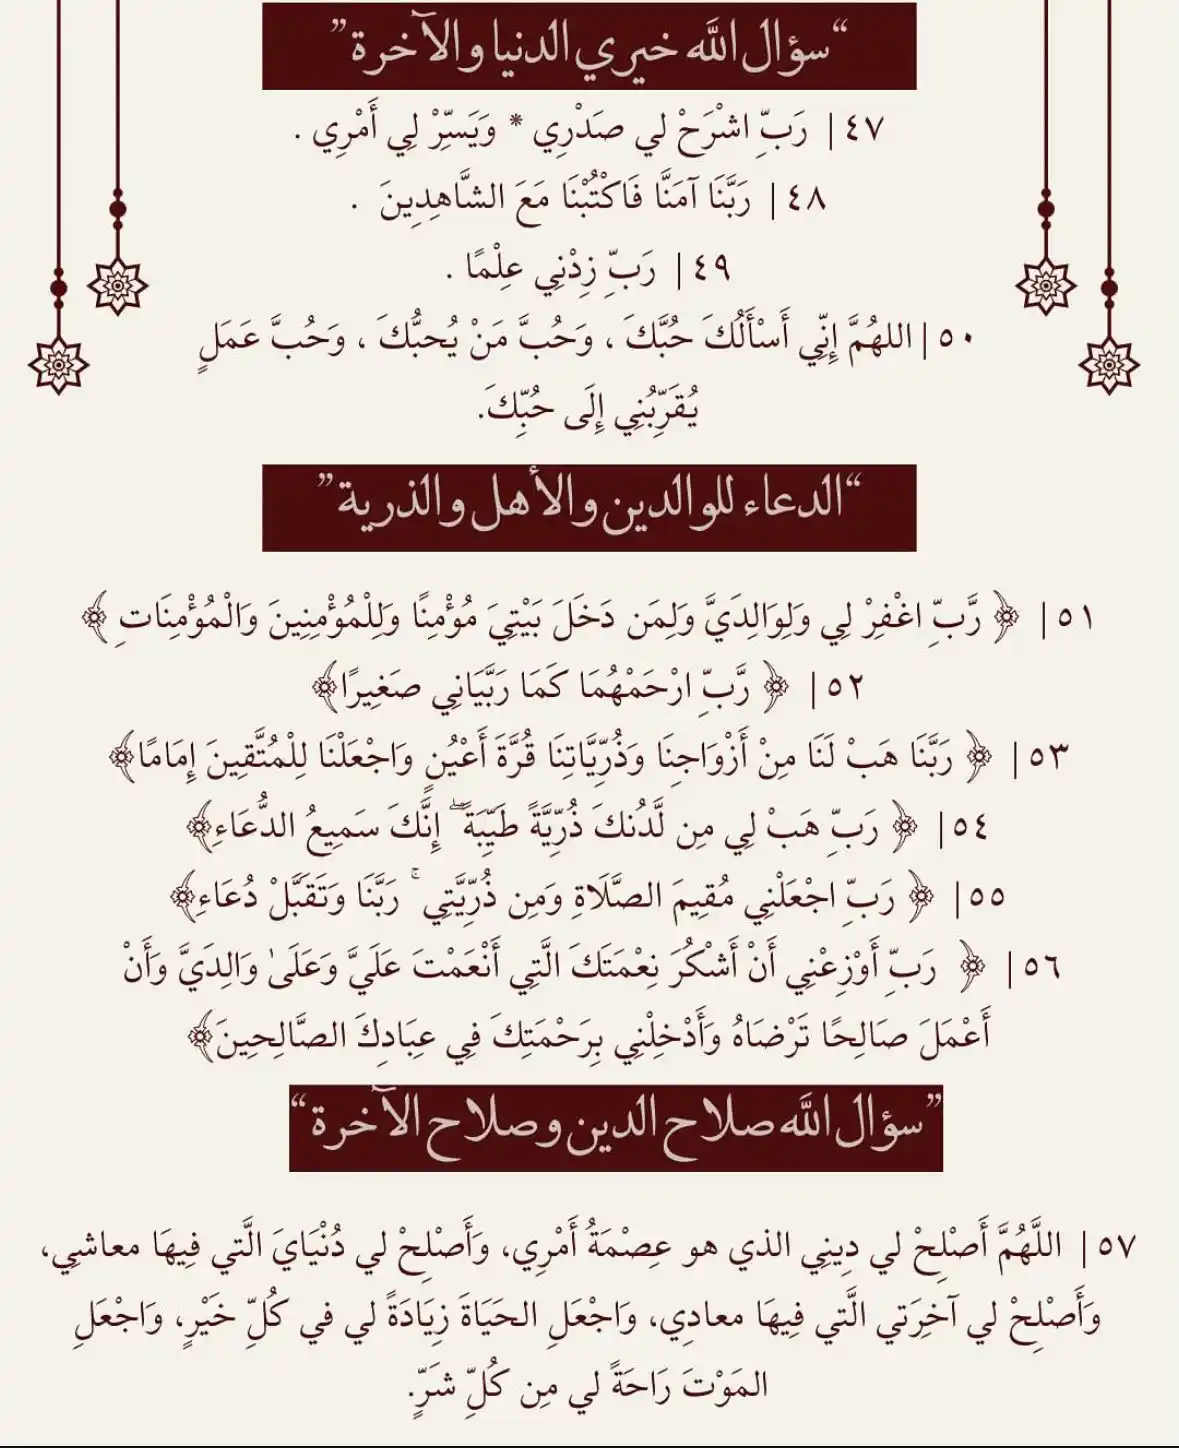 “سؤال الله خيري الدنيا والآخرة”
٤٧| رَبِّ اشْرَحْ لي صَدْرِي * وَيَسِّرْ لِي أَمْرِي .
٤٨| رَبَّنَا آمَنَّا فَاكْتُبْنَا مَعَ الشَّاهِدِينَ .
٤٩| رَبِّ زِدْنِي عِلْمًا .
٥٠| اللهُمَّ إِنِّي أَسْأَلُكَ حُبَّكَ ، وَحُبَّ مَنْ يُحبُّكَ ، وَحُبَّ عَمَلٍ
يُقَرِّبُنِي إِلَى حُبِّكَ.
“الدعاء للوالدين والأهل والذرية”
٥١| ﴿ رَّبِّ اغْفِرْ لِي وَلِوَالِدَيَّ وَلِمَن دَخَلَ بَيْتِيَ مُؤْمِنًا وَلِلْمُؤْمِنِينَ وَالْمُؤْمِنَاتِ ﴾
٥٢| ﴿ رَّبِّ ارْحَمْهُمَا كَمَا رَبَّيَانِي صَغِيرًا﴾
٥٣| ﴿ رَبَّنَا هَبْ لَنَا مِنْ أَزْوَاجِنَا وَذُرِّيَّاتِنَا قُرَّةَ أَعْيُنٍ وَاجْعَلْنَا لِلْمُتَّقِينَ إِمَامًا﴾
٥٤| ﴿ رَبِّ هَبْ لِي مِن لَّدُنكَ ذُرِّيَّةً طَيِّبَةً ۖ إِنَّكَ سَمِيعُ الدُّعَاءِ﴾
٥٥| ﴿ رَبِّ اجْعَلْنِي مُقِيمَ الصَّلَاةِ وَمِن ذُرِّيَّتِي ۚ رَبَّنَا وَتَقَبَّلْ دُعَاءِ﴾
٥٦| ﴿ رَبِّ أَوْزِعْنِي أَنْ أَشْكُرَ نِعْمَتَكَ الَّتِي أَنْعَمْتَ عَلَيَّ وَعَلَىٰ وَالِدَيَّ وَأَنْ
أَعْمَلَ صَالِحًا تَرْضَاهُ وَأَدْخِلْنِي بِرَحْمَتِكَ فِي عِبَادِكَ الصَّالِحِينَ﴾
”سؤال الله صلاح الدين وصلاح الآخرة“
٥٧| اللَّهُمَّ أَصْلِحْ لي دِينِي الذي هو عِصْمَةُ أَمْرِي، وَأَصْلِحْ لي دُنْيَايَ الَّتي فِيهَا معاشِي،
وَأَصْلِحْ لي آخِرَتي الَّتي فِيهَا معادِي، وَاجْعَلِ الحَيَاةَ زِيَادَةً لي في كُلِّ خَيْرٍ، وَاجْعَلِ
المَوْتَ رَاحَةً لي مِن كُلِّ شَرٍّ.